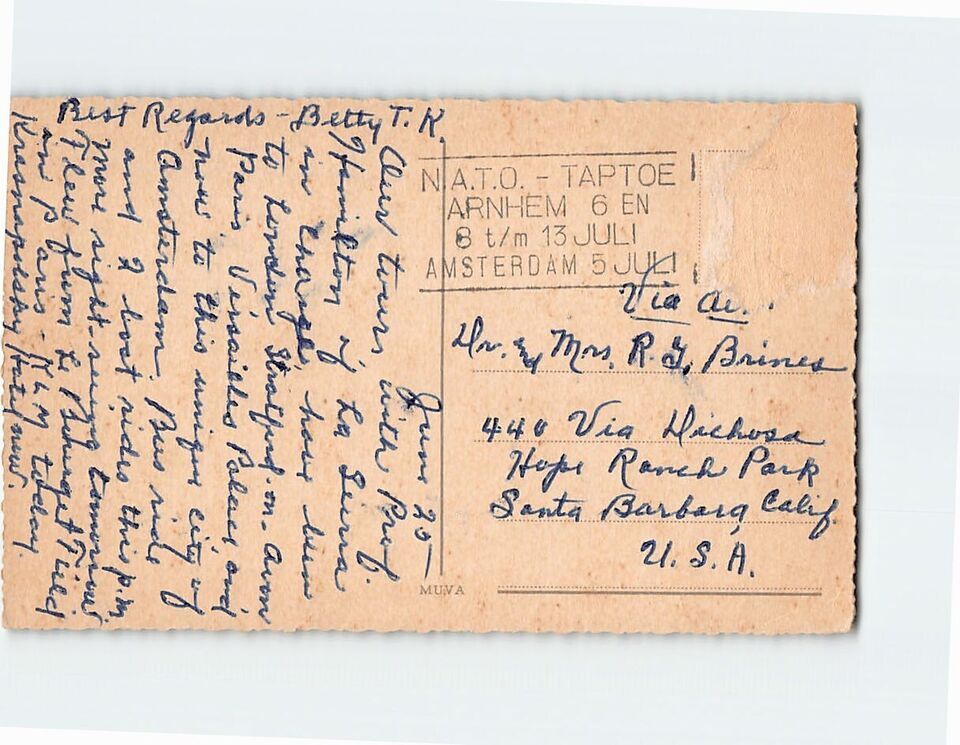 Best Regards - Betty T. K.
June 25 -
Our tours with Prof.
Hamilton of La Sierra
in charge, have been
to London Stratford-on-Avon
Paris Versailles Palace and
now to this unique city of
Amsterdam. Bus ride
and 2 boat rides this p.m.
More sight-seeing tomorrow
Flew from Le Bourget Field
and Paris - KLM today.
Krasnapolsky Hotel now.
N.A.T.O. - TAPTOE
ARNHEM 6 EN
8 t/m 13 JULI
AMSTERDAM 5 JULI
Via
Dr. and Mrs. R. G. Brines
440 Via Dichosa
Hope Ranch Park
Santa Barbara, Calif.
U.S.A.
MUVA